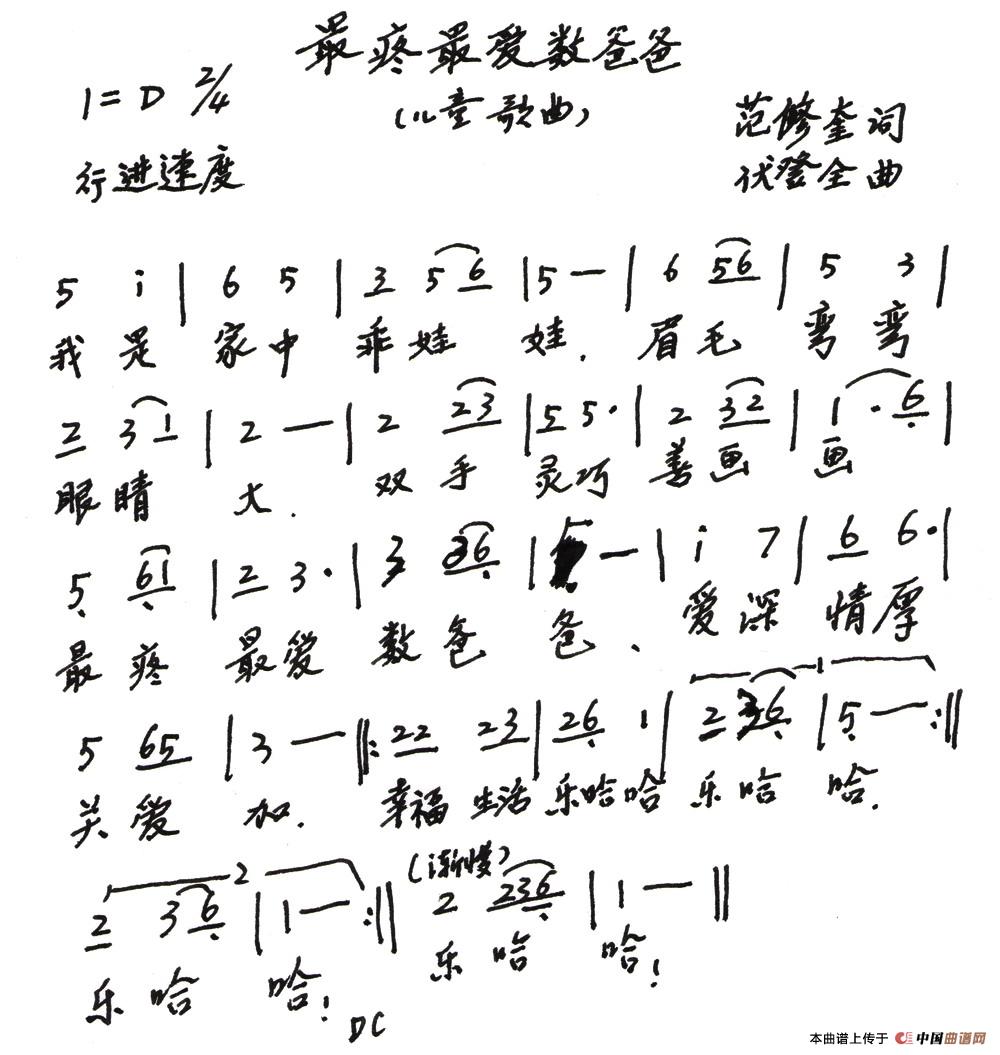 最疼最爱数爸爸
1=D 2/4
(儿童歌曲)
范修奎词
行进速度
伏登全曲
5 i | 6 5 | 3 5 6 | 5 — | 6 56 | 5 3 |
我是 家中 乖娃 娃. 眉毛 弯弯
2 3 1 | 2 — | 2 23 | 5 5· | 2 32 | 1 · 6 |
眼睛 大. 双手 灵巧 善画 画
5 61 | 2 3· | 3 36 | 5 — | i 7 | 6 6· |
最疼 最爱 数爸 爸、 爱深 情厚
1
5 65 | 3 — ‖: 22 23 | 26 1 | 2 36 | 5 — :‖
关爱 加. 幸福生活 乐哈哈 乐哈 哈.
2 (渐慢)
2 3 6 | 1 — :‖ 2 236 | 1 — ‖
乐哈 哈! 乐哈 哈!
DC
本曲谱上传于 中国曲谱网